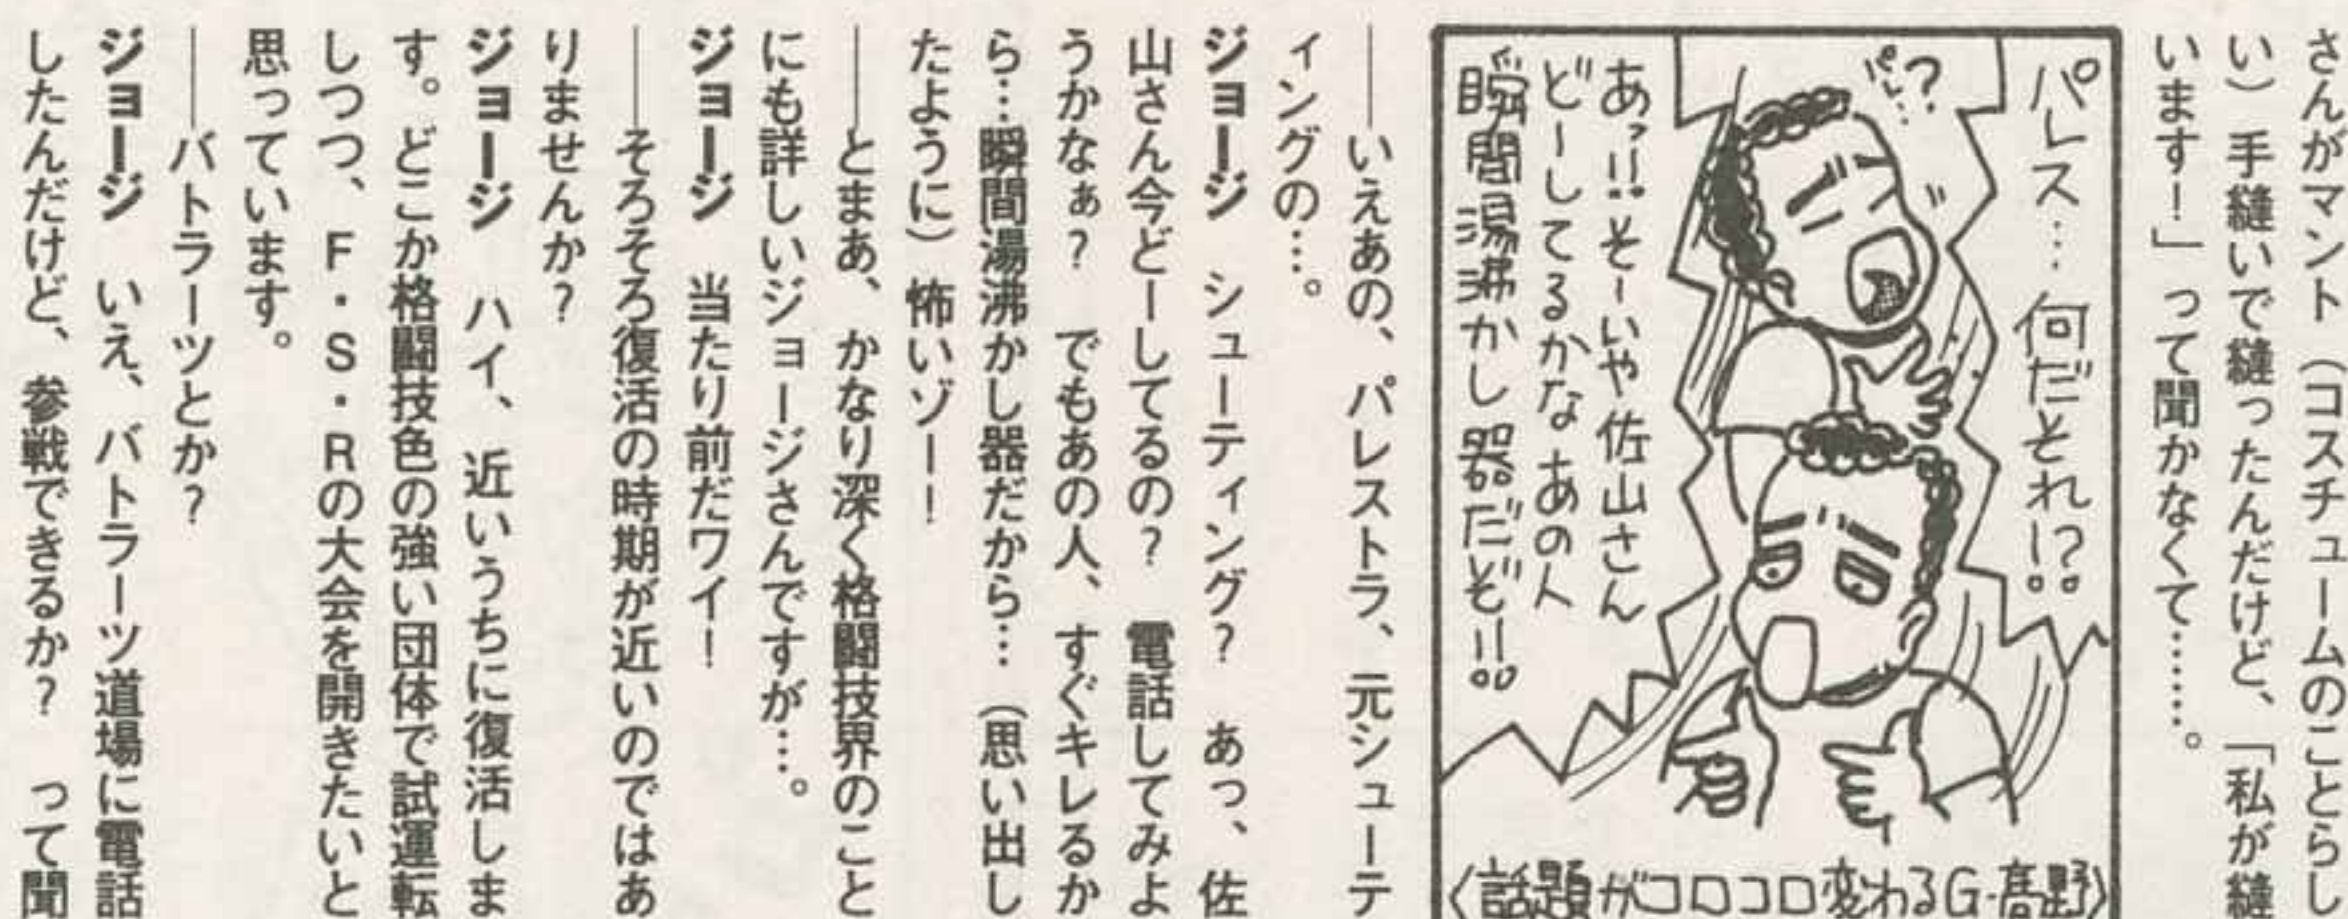 さんがマント（コスチュームのことらし
い）手縫いで縫ったんだけど、「私が縫
います！」って聞かなくて……。
パレス…何だそれー!?
パレ…?
あ?!!そーいや佐山さん
どーしてるかなあの人
瞬間湯沸かし器だぞ!!
〈話題がコロコロ変わるG・高野〉
――いえあの、パレストラ、元シューテ
ィングの…。
ジョージ　シューティング？　あっ、佐
山さん今どーしてるの？　電話してみよ
うかなぁ？　でもあの人、すぐキレるか
ら…瞬間湯沸かし器だから…（思い出し
たように）怖いゾー！
――とまあ、かなり深く格闘技界のこと
にも詳しいジョージさんですが…。
ジョージ　当たり前だワイ！
――そろそろ復活の時期が近いのではあ
りませんか？
ジョージ　ハイ、近いうちに復活しま
す。どこか格闘技色の強い団体で試運転
しつつ、F・S・Rの大会を開きたいと
思っています。
――バトラーツとか？
ジョージ　いえ、バトラーツ道場に電話
したんだけど、参戦できるか？　って聞